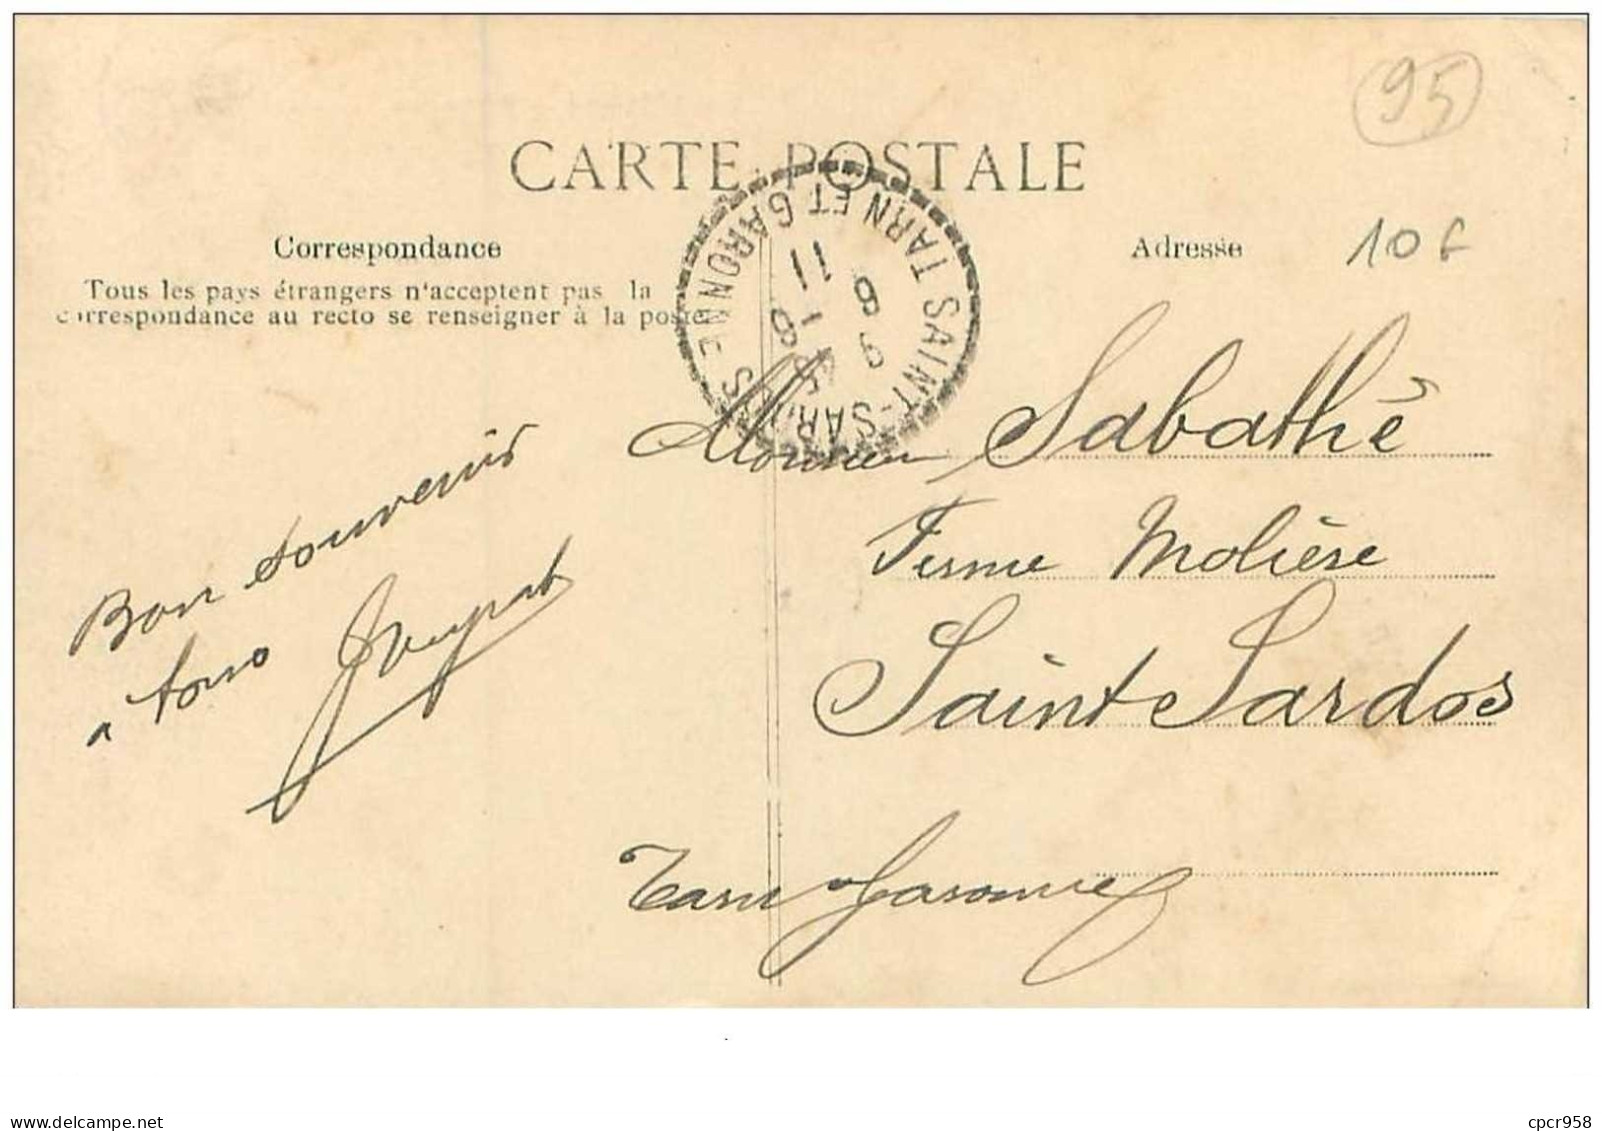 95
CARTE POSTALE
Correspondance
Adresse
10 F
Tous les pays étrangers n'acceptent pas la
correspondance au recto se renseigner à la poste
SAINT-SARDOS
TARN ET GARONNE
Monsieur Sabathé
Ferme Molière
Saint Sardos
Tarn Garonne
Bon souvenir
a tous
delcampe.net
cpcr958